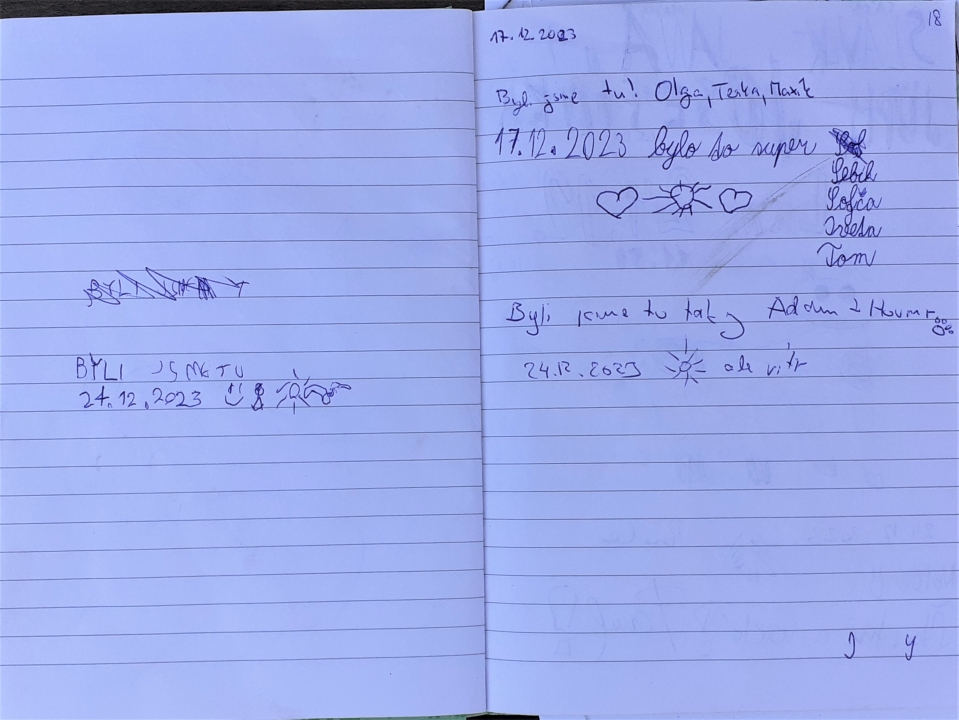 BYLI JSME TU
24.12.2023
18
17.12.2023
Byli jsme tu! Olga, Terka, Maxík
17.12.2023 bylo to super
Sebík
Sofča
Iveta
Tom
Byli jsme tu taky Adam +
24.12.2023 ale vítr